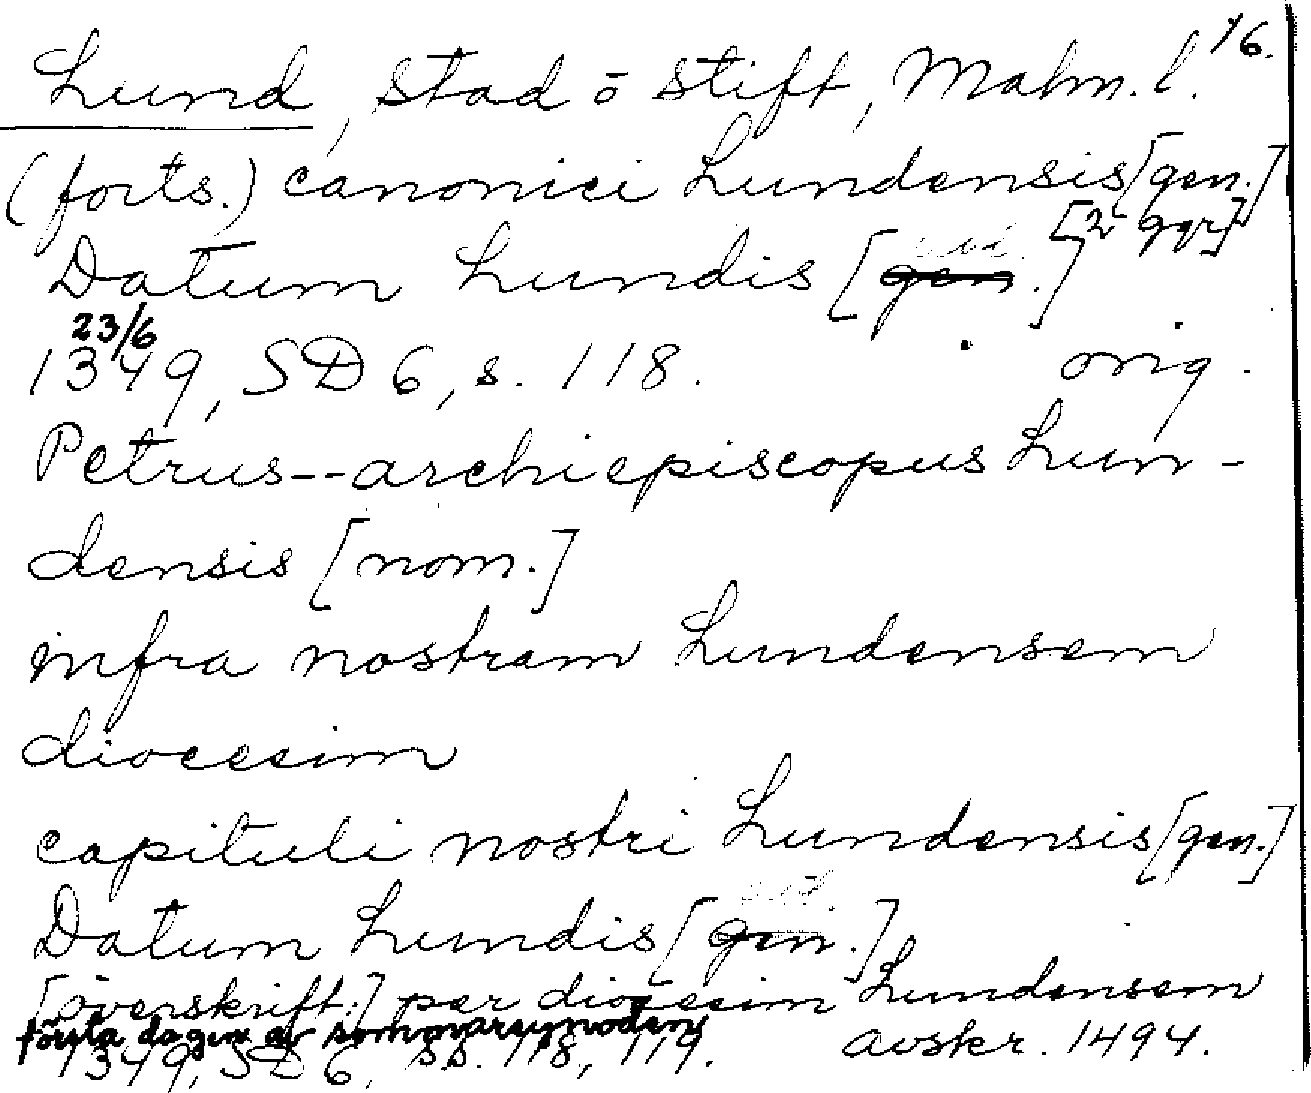 76.
Lund, stad o stift, Malm. l.
(forts.) canonici Lundensis [gen.]
[2 ggr]
Datum Lundis [gen.]
23/6
1349, SD 6, s. 118. orig.
Petrus--archiepiscopus Lun-
densis [nom.]
infra nostram Lundensem
diocesim
capituli nostri Lundensis [gen.]
Datum Lundis [gen.]
[överskrift:] per diocesim Lundensem
första dagen av sommarsynoden
1349, SD 6, ss. 118, 119. avskr. 1494.